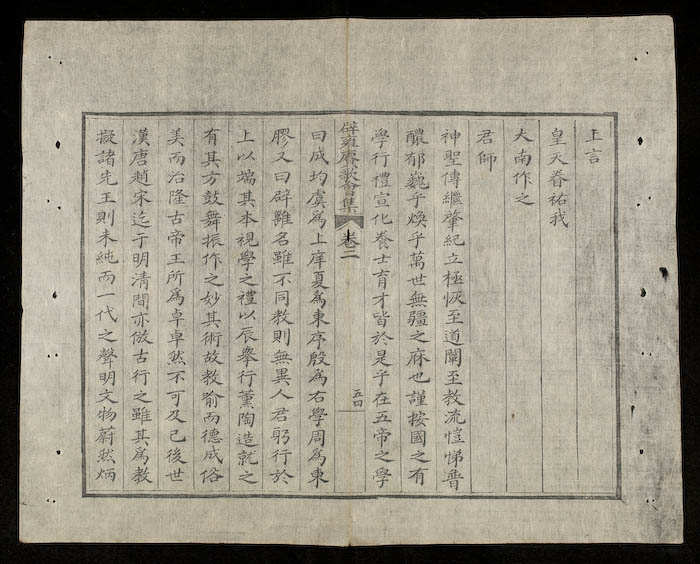 王言
皇天眷祐我
大南作之
君師
神聖傳繼肇紀立極恢至道闡至教流愷悌普
醲郁巍乎煥乎萬世無疆之庥也謹按國之有
學行禮宣化養士育才皆於是乎在五帝之學
辟雍賡歌會集 卷二 五四
曰成均虞為上庠夏為東序殷為右學周為東
膠又曰辟雝名雖不同教則無異人君躬行於
上以端其本視學之禮以辰舉行薰陶造就之
有其方鼓舞振作之妙其術故教喻而德成俗
美而治隆古帝王所為卓卓然不可及已後世
漢唐趙宋迄于明清間亦倣古行之雖其為教
擬諸先王則未純而一代之聲明文物蔚然炳